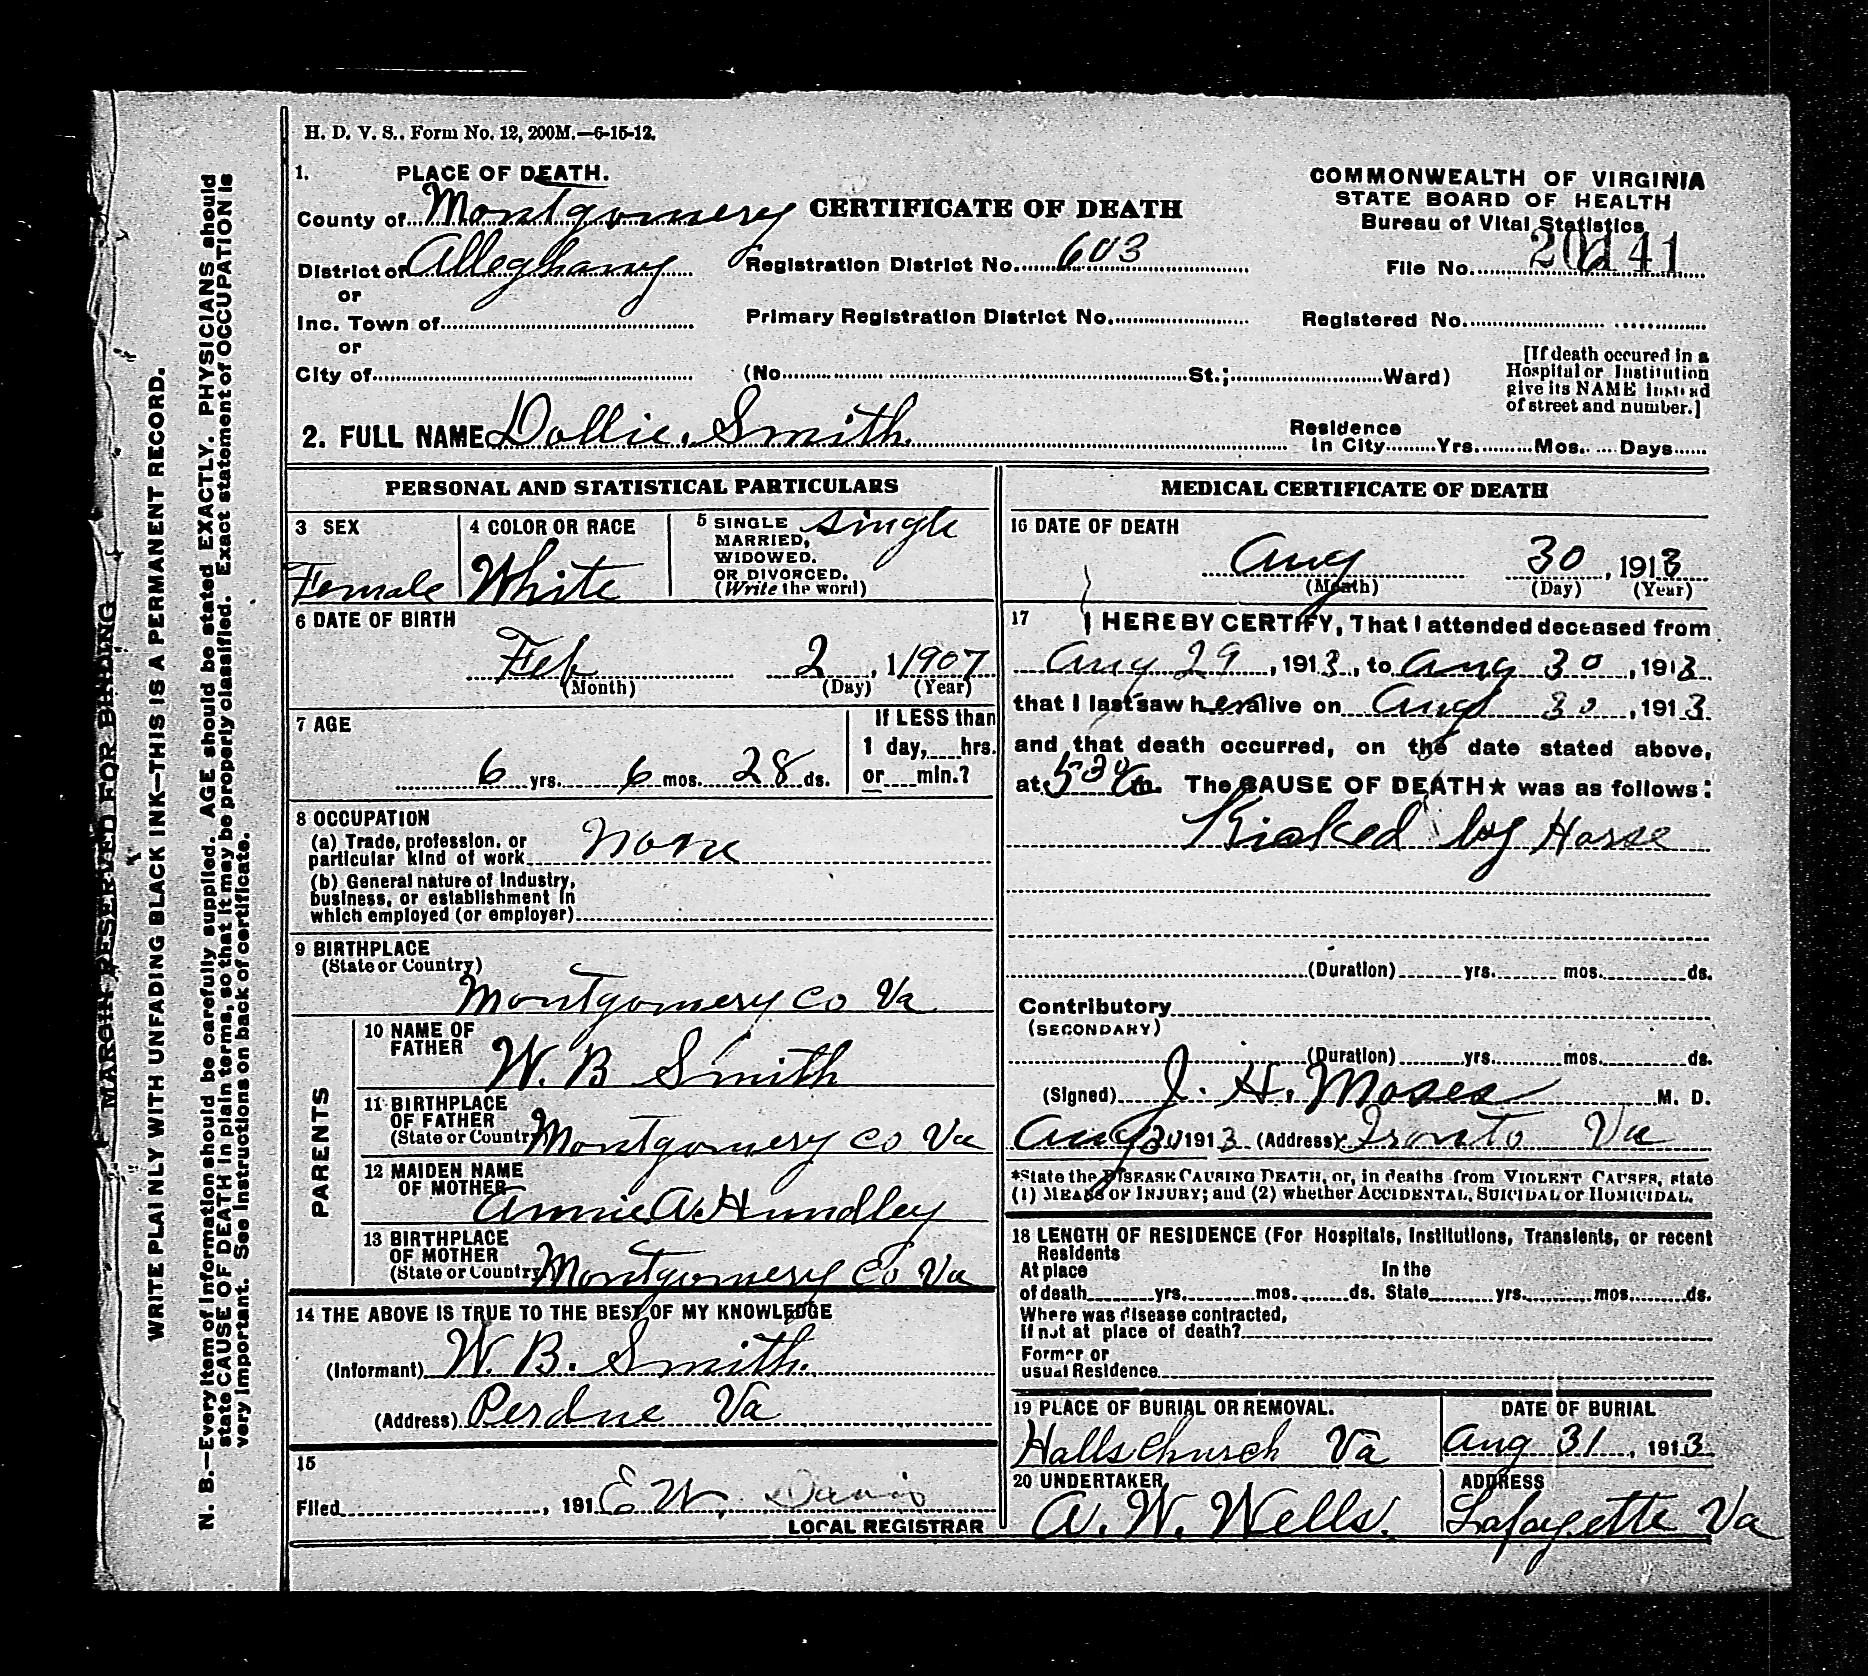 H. D. V. S.. Form No. 12, 200M.—6-15-12.
1. PLACE OF DEATH.
County of Montgomery
CERTIFICATE OF DEATH
COMMONWEALTH OF VIRGINIA
STATE BOARD OF HEALTH
Bureau of Vital Statistics
District of Alleghany
Registration District No. 603
File No. 20141
or
Inc. Town of
Primary Registration District No.
Registered No.
or
City of
(No. St.; Ward)
[If death occured in a
Hospital or Institution
give its NAME instead
of street and number.]
2. FULL NAME Dollie. Smith.
Residence
In City Yrs. Mos. Days
PERSONAL AND STATISTICAL PARTICULARS
3 SEX
Female
4 COLOR OR RACE
White
5 SINGLE
MARRIED,
WIDOWED.
OR DIVORCED.
(Write the word)
single
6 DATE OF BIRTH
Feb 2, 1 1907
(Month) (Day) (Year)
7 AGE
6 yrs. 6 mos. 28 ds.
If LESS than
1 day, hrs.
or min.?
8 OCCUPATION
(a) Trade, profession, or
particular kind of work None
(b) General nature of Industry,
business, or establishment in
which employed (or employer)
9 BIRTHPLACE
(State or Country)
Montgomery Co Va
PARENTS
10 NAME OF
FATHER
W. B Smith
11 BIRTHPLACE
OF FATHER
(State or Country) Montgomery Co Va
12 MAIDEN NAME
OF MOTHER
Annie A. Hundley
13 BIRTHPLACE
OF MOTHER
(State or Country) Montgomery Co Va
14 THE ABOVE IS TRUE TO THE BEST OF MY KNOWLEDGE
(Informant) W. B. Smith.
(Address) Perdue Va
15
Filed , 191 E W. Davis
LOCAL REGISTRAR
MEDICAL CERTIFICATE OF DEATH
16 DATE OF DEATH
Aug 30, 1913
(Month) (Day) (Year)
17 I HEREBY CERTIFY, That I attended deceased from
Aug 29, 1913, to Aug 30, 1913
that I last saw her alive on Aug 30, 1913
and that death occurred, on the date stated above,
at 530 m. The CAUSE OF DEATH★ was as follows:
Kicked by Horse
(Duration) yrs. mos. ds.
Contributory
(SECONDARY)
(Duration) yrs. mos. ds.
(Signed) J. H. Moses M. D.
Aug 30 1913 (Address) Ironto Va
*State the DISEASE CAUSING DEATH, or, in deaths from VIOLENT CAUSES, state
(1) MEANS OF INJURY; and (2) whether ACCIDENTAL, SUICIDAL or HOMICIDAL.
18 LENGTH OF RESIDENCE (For Hospitals, Institutions, Transients, or recent
Residents
At place In the
of death yrs. mos. ds. State yrs. mos. ds.
Where was disease contracted,
If not at place of death?
Former or
usual Residence
19 PLACE OF BURIAL OR REMOVAL.
Halls church Va
DATE OF BURIAL
Aug 31, 1913
20 UNDERTAKER
A. W. Wells.
ADDRESS
Lafayette Va
MARGIN RESERVED FOR BINDING
WRITE PLAINLY WITH UNFADING BLACK INK—THIS IS A PERMANENT RECORD.
N. B.—Every item of information should be carefully supplied. AGE should be stated EXACTLY. PHYSICIANS should
state CAUSE OF DEATH in plain terms, so that it may be properly classified. Exact statement of OCCUPATION is
very important. See instructions on back of certificate.